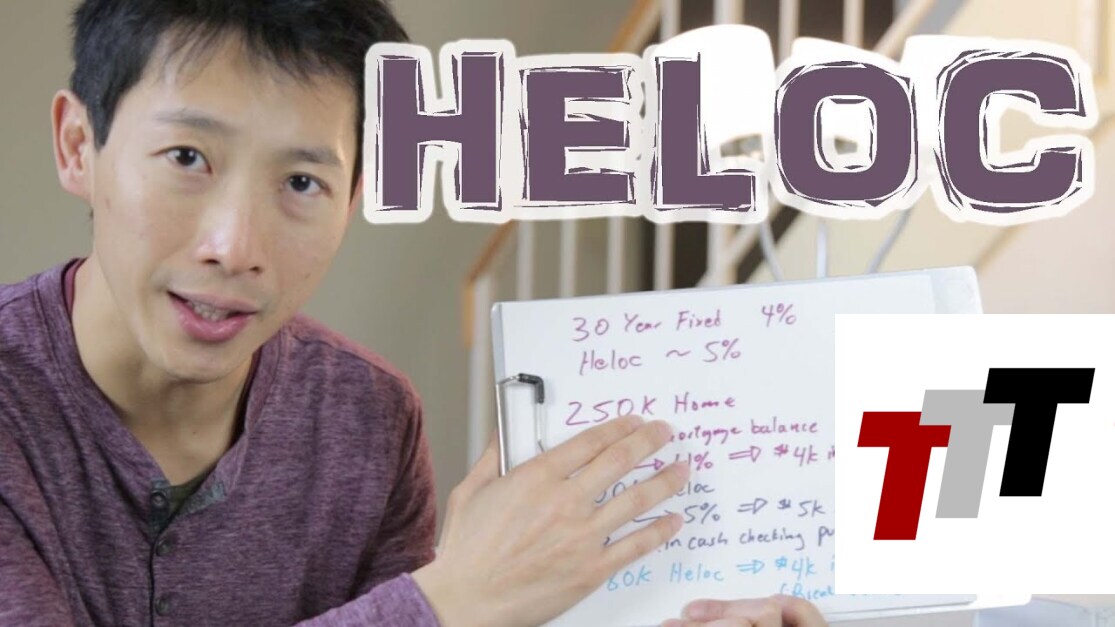 HELOC
30 Year Fixed 4%
Heloc ~ 5%
250K Home
mortgage balance
4% ⇒ $4k
Heloc
5% ⇒ $5k
in cash checking
80K Heloc ⇒ $4k
TTT